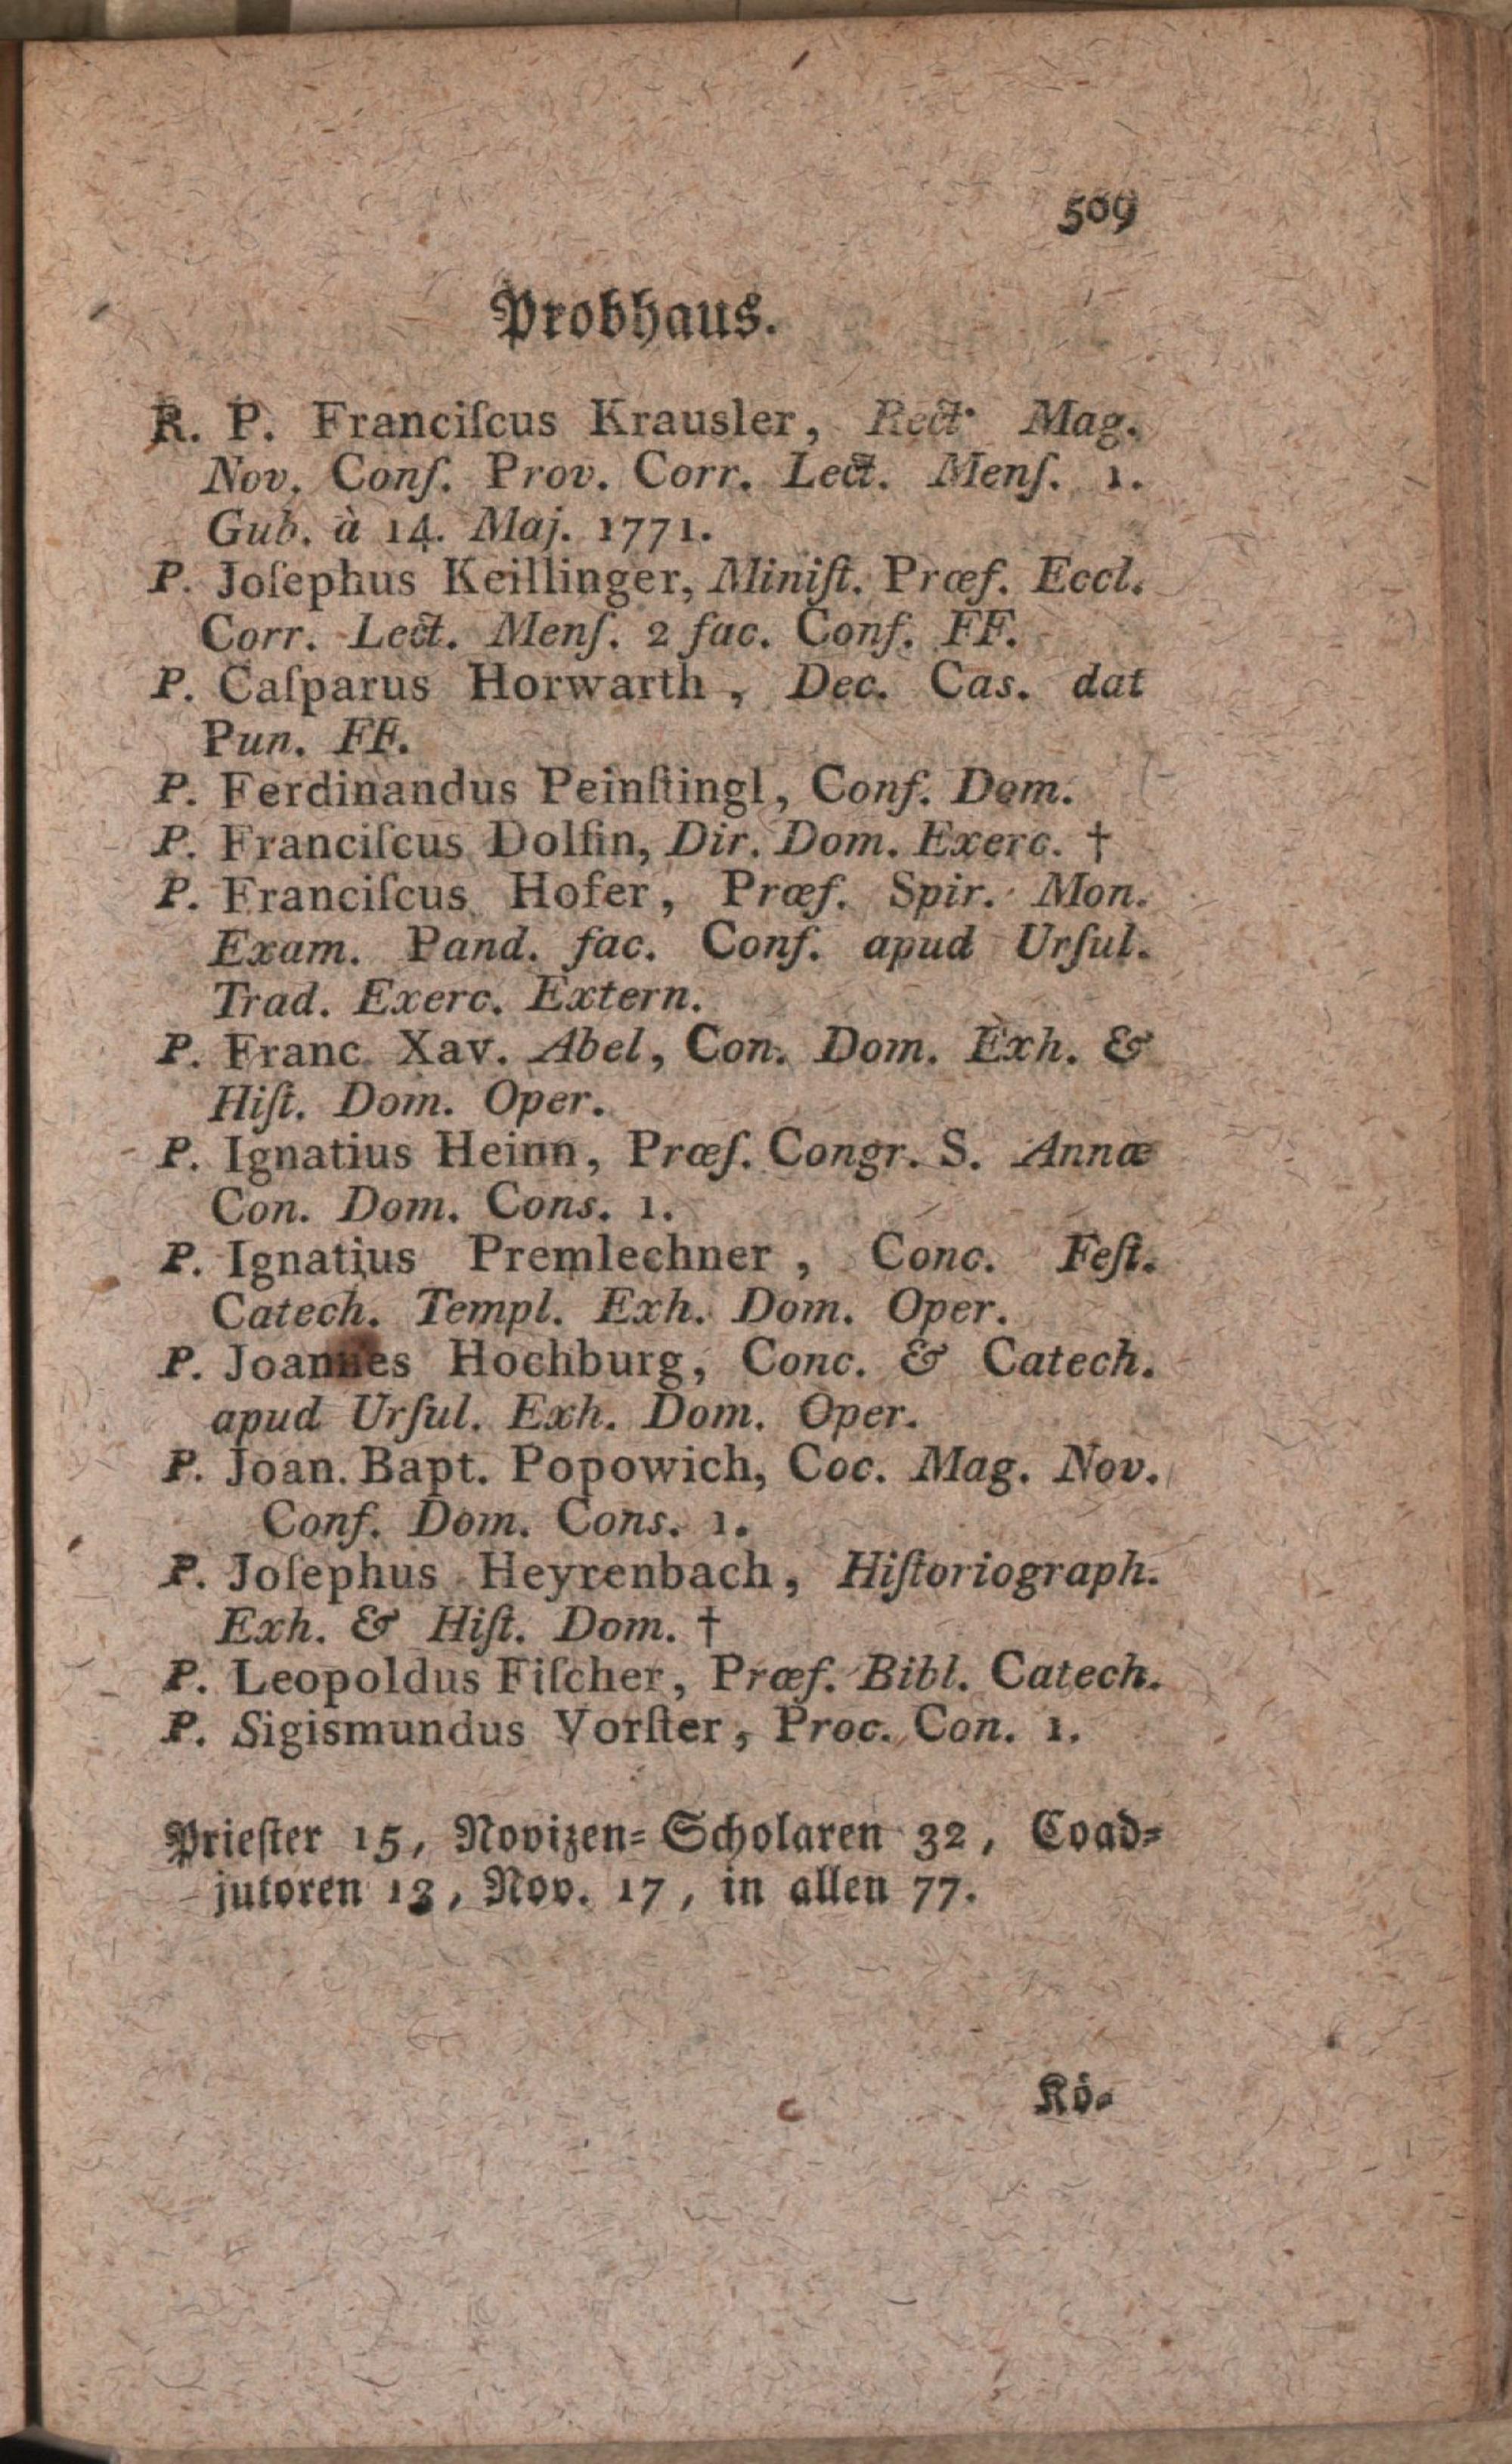 509
Probhaus.
R. P. Franciſcus Krausler, Rect. Mag.
Nov. Conſ. Prov. Corr. Lect. Menſ. 1.
Gub. à 14. Maj. 1771.
P. Joſephus Keillinger, Miniſt. Præf. Eccl.
Corr. Lect. Menſ. 2 fac. Conf. FF.
P. Caſparus Horwarth, Dec. Cas. dat
Pun. FF.
P. Ferdinandus Peinſtingl, Conf. Dom.
P. Franciſcus Dolfin, Dir. Dom. Exerc. †
P. Franciſcus Hofer, Præf. Spir. Mon.
Exam. Pand. fac. Conf. apud Urſul.
Trad. Exerc. Extern.
P. Franc. Xav. Abel, Con. Dom. Exh. &
Hiſt. Dom. Oper.
P. Ignatius Heinn, Præſ. Congr. S. Annæ
Con. Dom. Cons. 1.
P. Ignatius Premlechner, Conc. Feſt.
Catech. Templ. Exh. Dom. Oper.
P. Joannes Hochburg, Conc. & Catech.
apud Urſul. Exh. Dom. Oper.
P. Joan. Bapt. Popowich, Coc. Mag. Nov.
Conf. Dom. Cons. 1.
P. Joſephus Heyrenbach, Hiſtoriograph.
Exh. & Hiſt. Dom. †
P. Leopoldus Fiſcher, Præf. Bibl. Catech.
P. Sigismundus Vorſter, Proc. Con. 1.
Prieſter 15, Novizen-Scholaren 32, Coad-
jutoren 13, Nov. 17, in allen 77.
Kö-